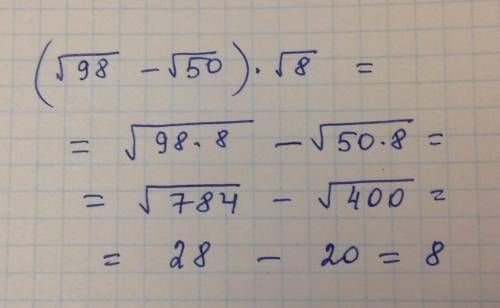 (√98 − √50) · √8 =
= √98·8 − √50·8 =
= √784 − √400 =
= 28 − 20 = 8